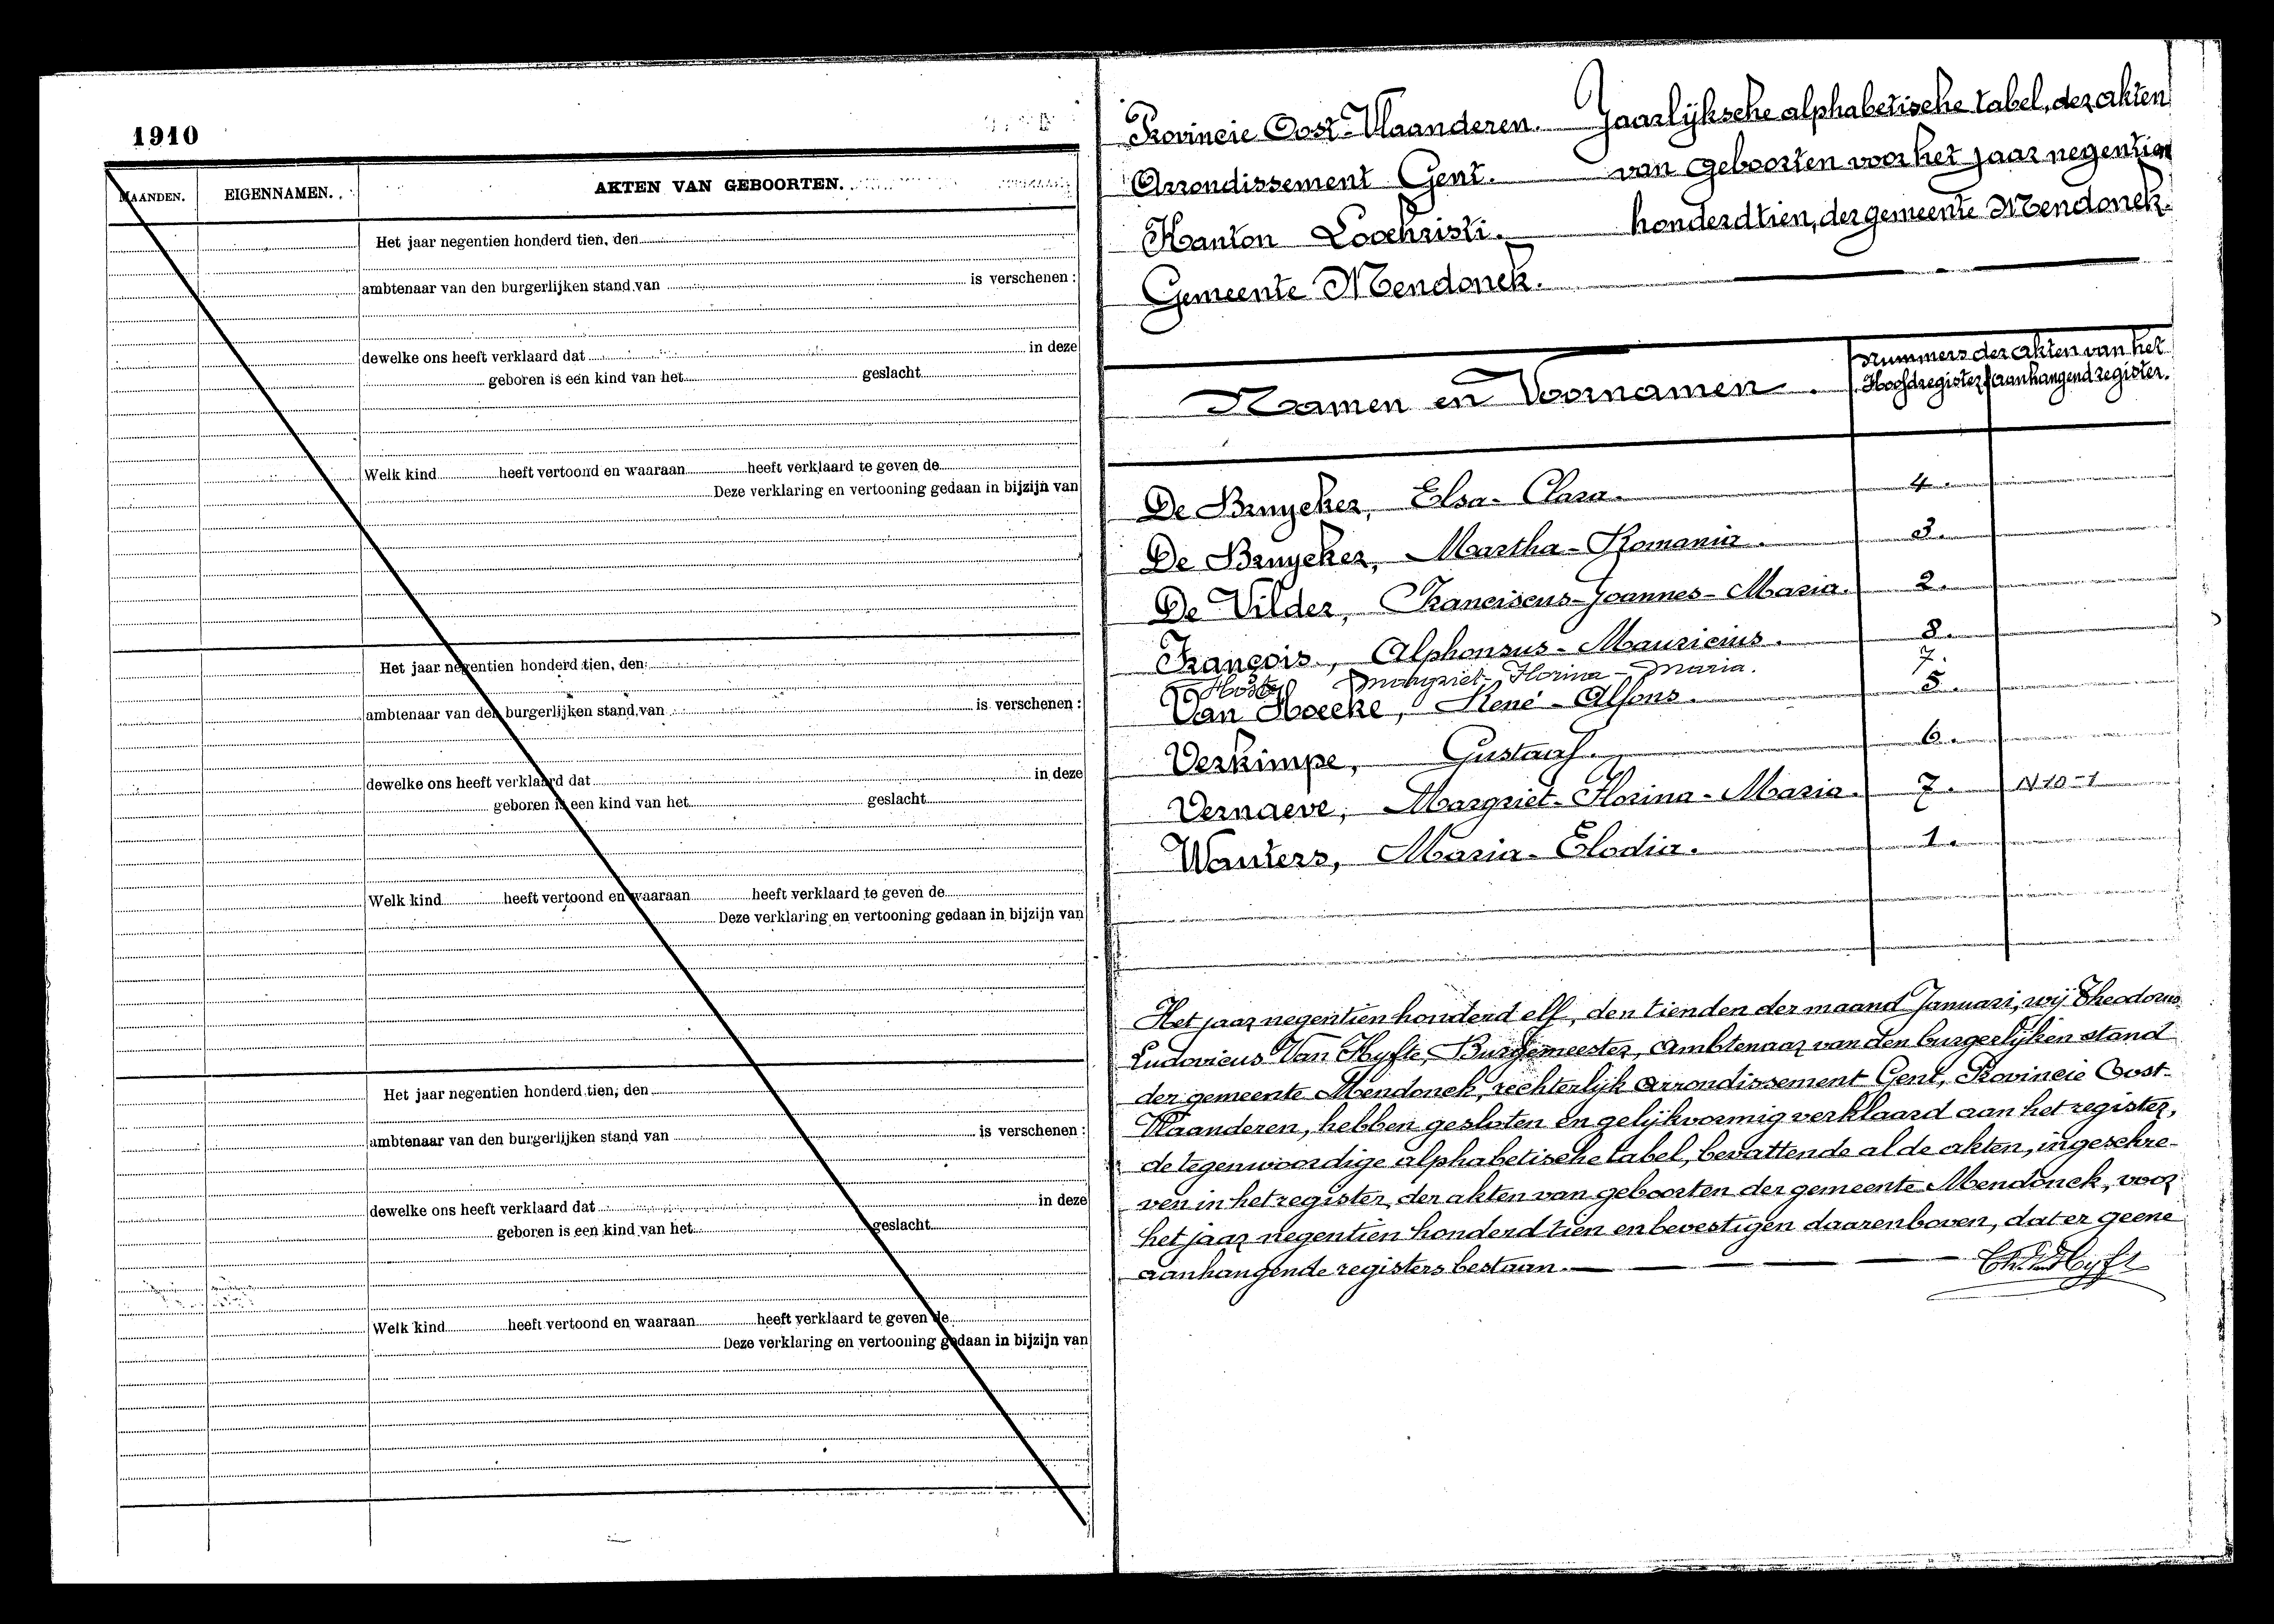 1910
MAANDEN. EIGENNAMEN. AKTEN VAN GEBOORTEN.
Het jaar negentien honderd tien, den
ambtenaar van den burgerlijken stand van is verschenen :
dewelke ons heeft verklaard dat in deze
geboren is een kind van het geslacht
Welk kind heeft vertoond en waaraan heeft verklaard te geven de
Deze verklaring en vertooning gedaan in bijzijn van
Het jaar negentien honderd tien, den
ambtenaar van den burgerlijken stand van is verschenen :
dewelke ons heeft verklaard dat in deze
geboren is een kind van het geslacht
Welk kind heeft vertoond en waaraan heeft verklaard te geven de
Deze verklaring en vertooning gedaan in bijzijn van
Het jaar negentien honderd tien, den
ambtenaar van den burgerlijken stand van is verschenen :
dewelke ons heeft verklaard dat in deze
geboren is een kind van het geslacht
Welk kind heeft vertoond en waaraan heeft verklaard te geven de
Deze verklaring en vertooning gedaan in bijzijn van
Provincie Oost-Vlaanderen. Jaarlijksche alphabetische tabel, der akten
Arrondissement Gent. van geboorten voor het jaar negentien
Kanton Loochristi. honderd tien, der gemeente Mendonck.
Gemeente Mendonck.
Namen en Voornamen. Nummers der akten van het
Hoofdregister aanhangend register.
De Bruycker, Elsa-Clara. 4.
De Bruycker, Martha-Romania. 3.
De Vilder, Franciscus-Joannes-Maria. 2.
François, Alphonsus-Mauricius. 8.
Margriet-Florina-Maria. 7.
Van Hoecke, René-Alfons. 5.
Verkimpe, Gustaaf. 6.
Vernaeve, Margriet-Florina-Maria. 7. N 10-1
Wauters, Maria-Elodia. 1.
Het jaar negentien honderd elf, den tienden der maand Januari, wij Theodorus
Ludovicus Van Hyfte, Burgemeester, Ambtenaar van den burgerlijken stand
der gemeente Mendonck, rechterlijk arrondissement Gent, Provincie Oost-
Vlaanderen, hebben gesloten en gelijkvormig verklaard aan het register,
de tegenwoordige alphabetische tabel, bevattende al de akten, ingeschre-
ven in het register der akten van geboorten der gemeente Mendonck, voor
het jaar negentien honderd tien en bevestigen daarenboven, dat er geene
aanhangende registers bestaan.